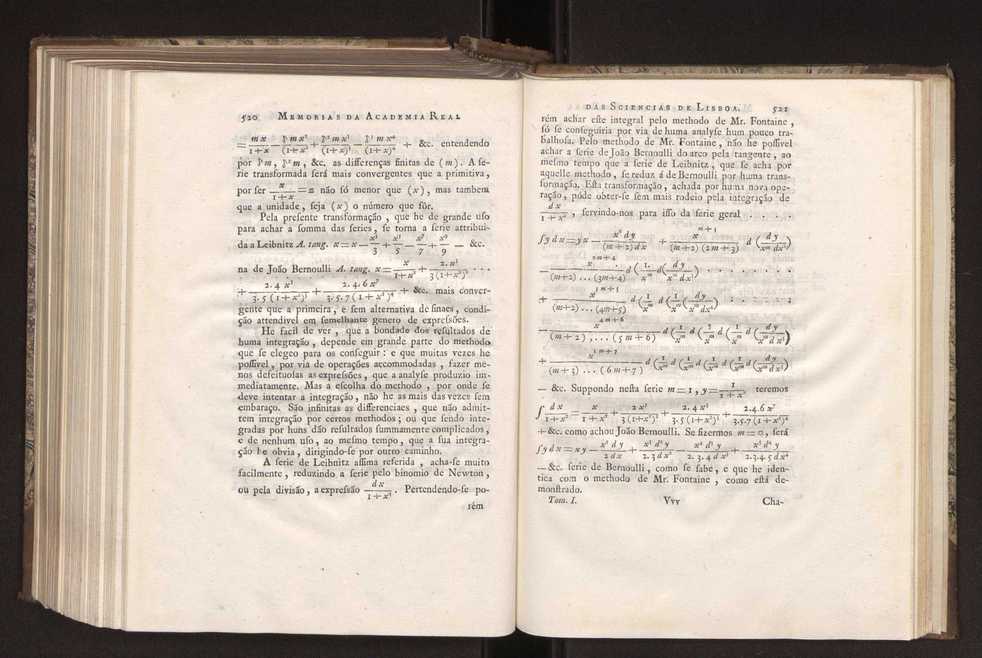 520 MEMORIAS DA ACADEMIA REAL
= mx/(1+x) + mx²/(1+x)² + mx³/(1+x)³ mx⁴/(1+x)⁴ + &c. entendendo
por m, m, &c. as differenças finitas de (m). A se-
rie transformada será mais convergentes que a primitiva,
por ser x/(1+x) = a não só menor que (x), mas tambem
que a unidade, seja (x) o número que fôr.
Pela preſente transformação, que he de grande uſo
para achar a ſomma das ſeries, ſe torna a ſerie attribui-
da a Leibnitz A. tang. x = x − x³/3 + x⁵/5 − x⁷/7 + x⁹/9 − &c.
na de João Bernoulli A. tang. x = x/(1+x²) + 2.x³/3(1+x²)² . . .
+ 2.4 x⁵/3.5(1+x²)³ + 2.4.6 x⁷/3.5.7(1+x²)⁴ + &c. mais conver-
gente que a primeira, e ſem alternativa de ſinaes, condi-
ção attendivel em ſemelhante genero de expreſsões.
He facil de ver, que a bondade dos reſultados de
huma integração, depende em grande parte do methodo
que ſe elegeo para os conſeguir: e que muitas vezes he
poſſivel, por via de operações accommodadas, fazer me-
nos defeituoſas as expreſsões, que a analyſe produzio im-
mediatamente. Mas a eſcolha do methodo, por onde ſe
deve intentar a integração, não he as mais das vezes ſem
embaraço. São infinitas as differenciaes, que não admit-
tem integração por certos methodos; ou que ſendo inte-
gradas por huns dão reſultados ſummamente complicados,
e de nenhum uſo, ao meſmo tempo, que a ſua integra-
ção he obvia, dirigindo-ſe por outro caminho.
A ſerie de Leibnitz aſſima referida, acha-ſe muito
facilmente, reduzindo a ſerie pelo binomio de Newton,
ou pela diviſão, a expreſsão dx/(1+x²). Pertendendo-ſe po-
rém
DAS SCIENCIAS DE LISBOA. 521
rém achar eſte integral pelo methodo de Mr. Fontaine,
ſó ſe conſeguiria por via de huma analyſe hum pouco tra-
balhoſa. Pelo methodo de Mr. Fontaine, não he poſſivel
achar a ſerie de João Bernoulli do arco pela tangente, ao
meſmo tempo que a ſerie de Leibnitz, que ſe acha por
aquelle methodo, ſe reduz á de Bernoulli por huma trans-
formação. Eſta transformação, achada por huma nova ope-
ração, póde obter-ſe ſem mais rodeio pela integração de
dx/(1+x²), ſervindo-nos para iſſo da ſerie geral . . . .
∫y dx = yx − x² dy/(m+2)dx + x^(m+3)/(m+2)(2m+3) d(dy/x^m dx²)
− x/(m+2)...(3m+4) d(1/x^m d(dy/x^m dx)) . . . . . . . .
+ x/(m+2)...(4m+5) d(1/x^m d(1/x^m d(dy/x^m dx²) . . . . . ;
− x/(m+2),...(5m+6) d(1/x^m d(1/x^m d(1/x^m d(dy/x^m dx²)
+ x/(m+3)...(6m+7) d(1/x^m d(1/x^m d(1/x^m d(1/x^m d(dy/x^m dx²)
− &c. Suppondo neſta ſerie m = 1, y = 1/(1+x²) teremos
∫ dx/(1+x²) = x/(1+x²) + 2x³/3(1+x²)² + 2.4 x⁵/3.5(1+x²)³ + 2.4.6 x⁷/3.5.7(1+x²)⁴
+ &c. como achou João Bernoulli. Se fizermos m = 0, ſerá
∫y dx = xy − x² dy/2dx + x³ d²y/2.3dx² − x⁴ d³y/2.3.4dx³ + x⁵ d⁴y/2.3.4.5dx⁴
− &c. ſerie de Bernoulli, como ſe ſabe, e que he iden-
tica com o methodo de Mr. Fontaine, como eſtá de-
monſtrado.
Tom. I. Vvv Cha-